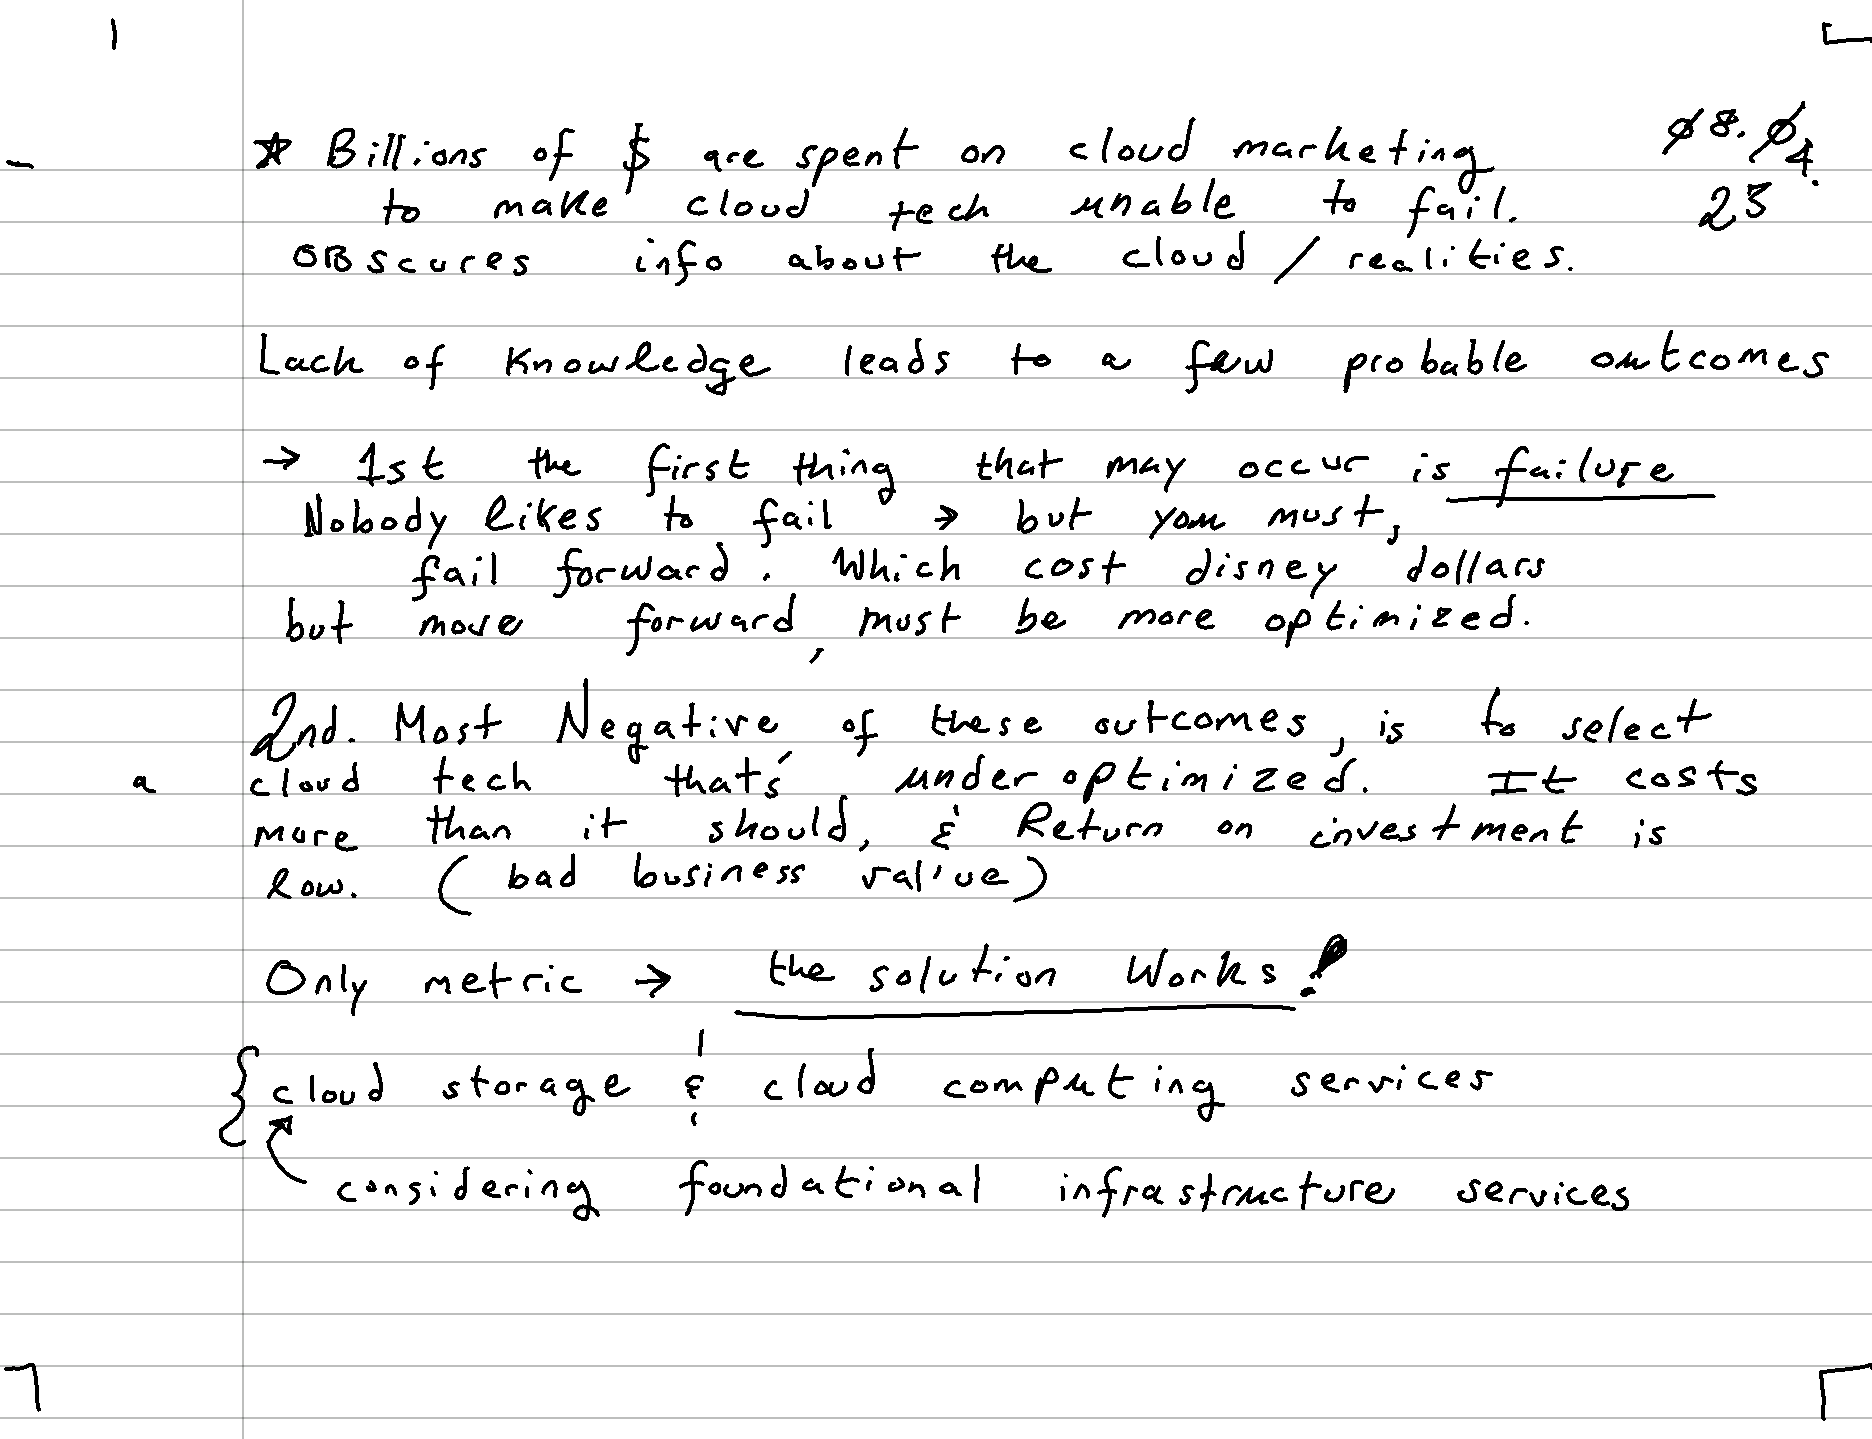 ☆ Billions of $ are spent on cloud marketing
08.04.
to make cloud tech unable to fail.
23
OBscures info about the cloud / realities.
Lack of knowledge leads to a few probable outcomes
→ 1st the first thing that may occur is failure
Nobody likes to fail → but you must,
fail forward. Which cost disney dollars
but move forward, must be more optimized.
2nd. Most Negative, of these outcomes, is to select
a cloud tech that's underoptimized. It costs
more than it should, & Return on investment is
low. (bad business value)
Only metric → the solution Works!
{ cloud storage & cloud computing services
considering foundational infrastructure services